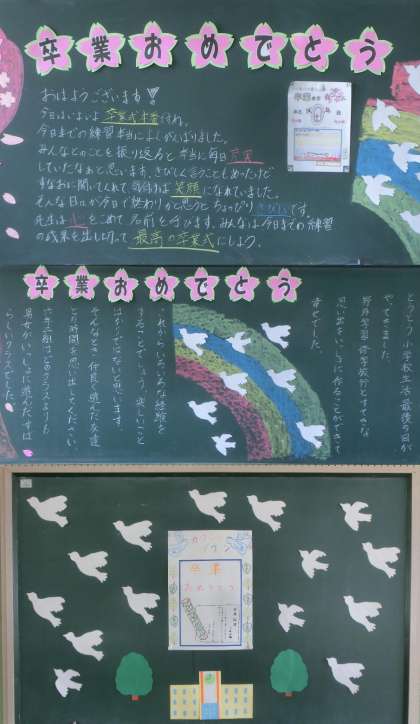 卒業おめでとう
おはようございます!!
今日はいよいよ卒業式本番ですね。
今日までの練習本当によくがんばりました。
みんなとのことを振り返ると本当に毎日充実
していたなぁと思います。きびしく言うこともあったけど
すなおに聞いてくれて気付けば笑顔になれていました。
そんな日々が今日で終わりかと思うとちょっぴりさみしいです。
先生は心をこめて名前を呼びます。みんなは今日までの練習
の成果を出し切って最高の卒業式にしよう。
卒業おめでとう
小学校生活最後の日が
やってきました。
野外学習、修学旅行とすてきな
思い出をいっしょに作ることができて
幸せでした。
これからいろいろな経験を
することでしょう。楽しいこと
ばかりではないと思います。
そんなとき、仲良く遊んだ友達
との時間を思い出してください。
六年二組はどのクラスよりも
男女がいっしょに遊んだすば
らしいクラスでした。
卒業
おめでとう